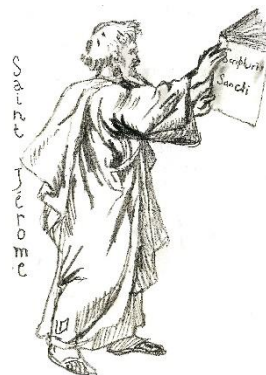 Saint Jérome
Scripturis
Sancti